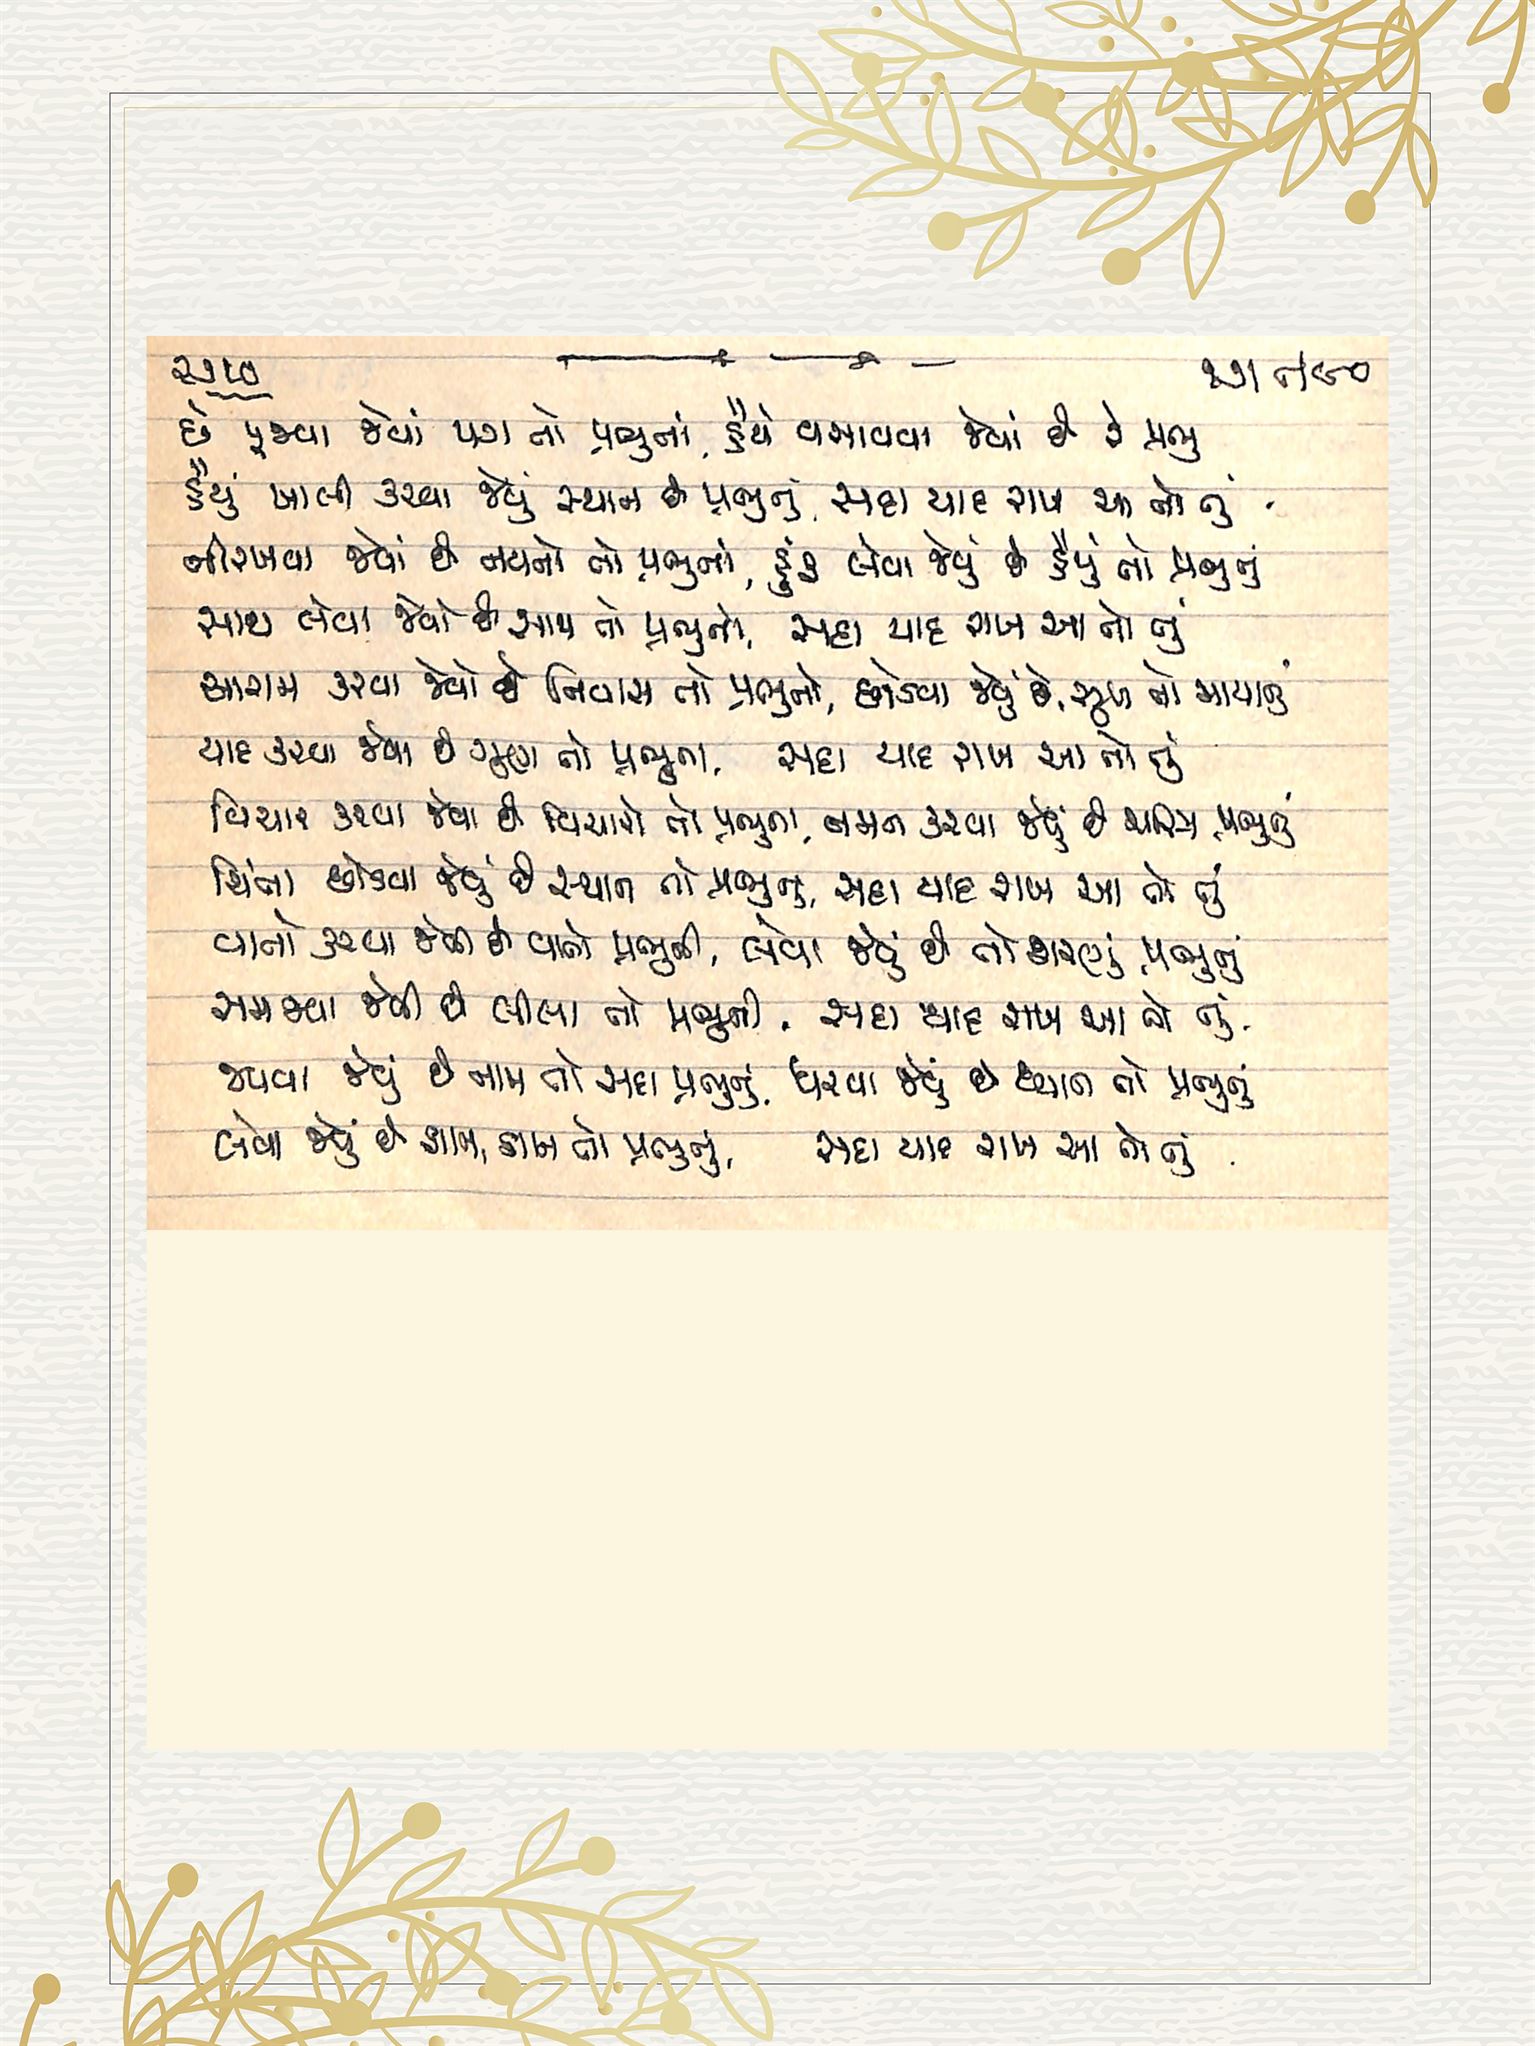 છે પૂજવા જેવાં પગ તો પ્રભુનાં, હૈયે વસાવવા જેવાં છે રે પ્રભુ
હૈયું ખાલી કરવા જેવું સ્થાન છે પ્રભુનું, સદા યાદ રાખ આ તો તું.
નીરખવા જેવાં છે નયનો તો પ્રભુનાં, હૂંફ લેવા જેવું છે હૈયું તો પ્રભુનું
સાથ લેવા જેવો છે સાથ તો પ્રભુનો, સદા યાદ રાખ આ તો તું
આરામ કરવા જેવો છે નિવાસ તો પ્રભુનો, છોડવા જેવું છે, સુખ તો માયાનું
યાદ કરવા જેવા છે ગુણ તો પ્રભુના, સદા યાદ રાખ આ તો તું
વિચાર કરવા જેવા છે વિચારો તો પ્રભુના, નમન કરવા જેવું છે ચરિત્ર પ્રભુનું
ચિંતા છોડવા જેવું છે સ્થાન તો પ્રભુનું, સદા યાદ રાખ આ તો તું
વાતો કરવા જેવી છે વાતો પ્રભુની, લેવા જેવું છે તો શરણું પ્રભુનું
સમજવા જેવી છે લીલા તો પ્રભુની. સદા યાદ રાખ આ તો તું.
જપવા જેવું છે નામ તો સદા પ્રભુનું, ધરવા જેવું છે ધ્યાન તો પ્રભુનું
લેવા જેવું છે શાન, તો પ્રભુનું, સદા યાદ રાખ આ તો તું.